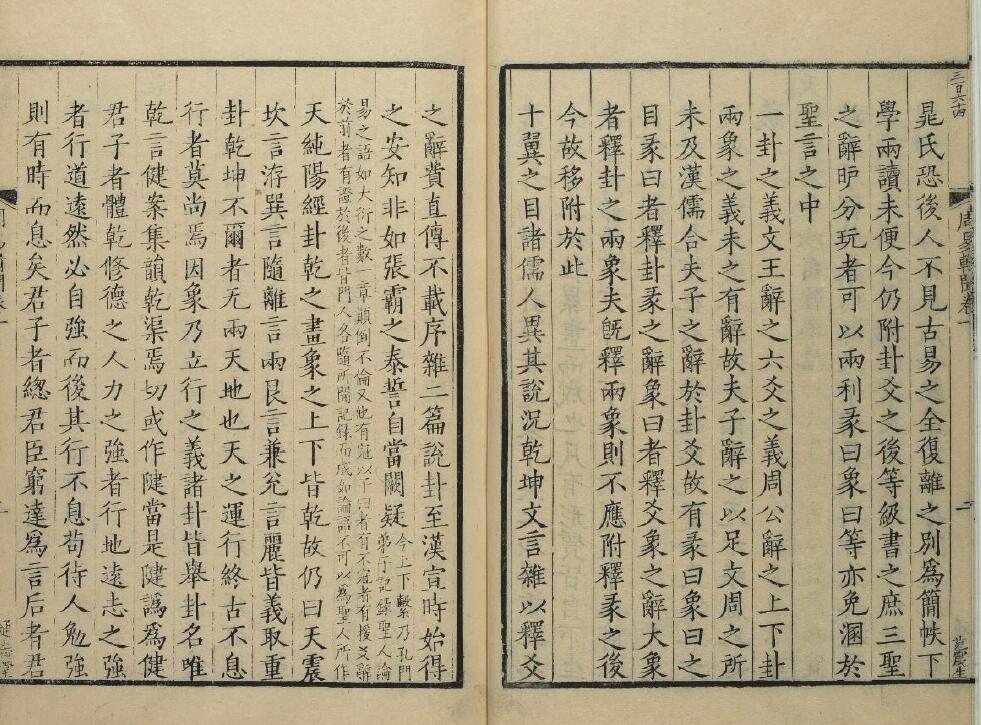 三百六十四
周易輯聞卷一
二
晁氏恐後人不見古易之全復離之別為簡帙下
學兩讀未便今仍附卦爻之後等級書之庶三聖
之辭昈分玩者可以兩利彖曰象曰等亦免溷於
聖言之中
一卦之義文王辭之六爻之義周公辭之上下卦
兩象之義未之有辭故夫子辭之以足文周之所
未及漢儒合夫子之辭於卦爻故有彖曰象曰之
目彖曰者釋卦彖之辭象曰者釋爻象之辭大象
者釋卦之兩象夫旣釋兩象則不應附釋彖之後
今故移附於此
十翼之目諸儒人異其說況乾坤文言雜以釋爻
之辭費直傳不載序雜二篇說卦至漢宣時始得
之安知非如張霸之泰誓自當闕疑今上下繫乃孔門
弟子記錄聖人論
易之語如大衍之數一章顛倒不倫又也有冠以子曰者有不冠者有援爻辭
於前者有證於後者皆門人各隨所聞記録而成如論語不可以為聖人所作
天純陽經卦乾之畫象之上下皆乾故仍曰天震
坎言洊巽言隨離言兩艮言兼兊言麗皆義取重
卦乾坤不爾者无兩天地也天之運行終古不息
行者莫尚焉因象乃立行之義諸卦皆舉卦名唯
乾言健案集韻乾渠焉切或作健當是健譌為健
君子者體乾修德之人力之強者行地遠志之強
者行道遠然必自強而後其行不息苟待人勉強
則有時而息矣君子者總君臣窮達為言后者君